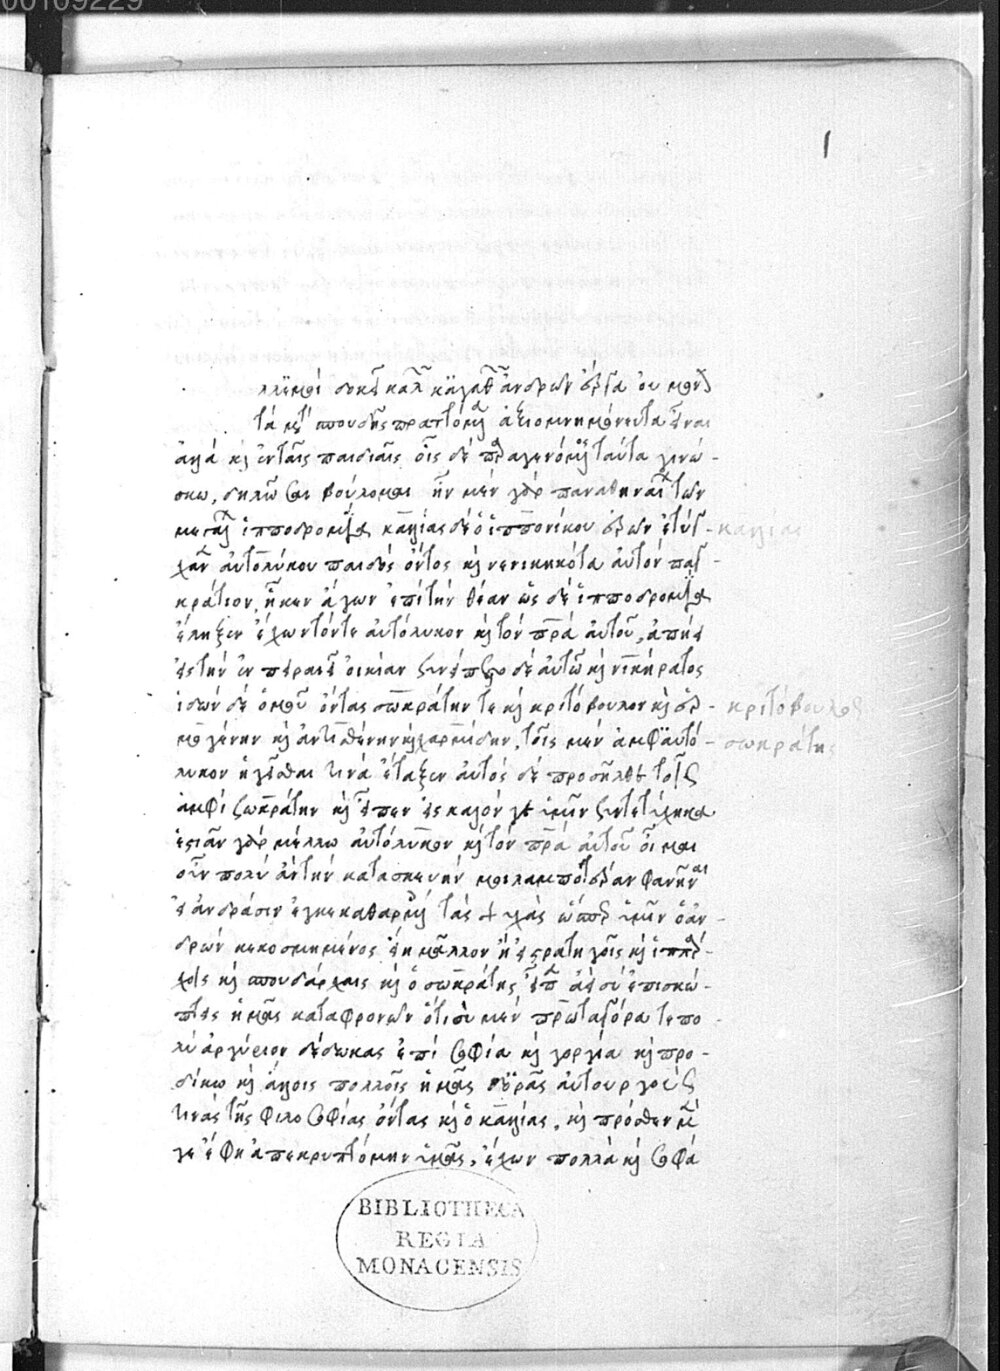 00109229
1
λλ' ἐμοὶ δοκεῖ καλῶν κἀγαθῶν ἀνδρῶν ἔργα οὐ μόνον
τὰ μετὰ σπουδῆς πραττόμενα ἀξιομνημόνευτα εἶναι
ἀλλὰ καὶ ἐν ταῖς παιδιαῖς οἷς δὲ παραγενόμενος ταῦτα γινώ-
σκω, δηλῶσαι βούλομαι ἦν μὲν γὰρ παναθηναίων τῶν
μεγάλων ἱπποδρομία καλλίας δὲ ὁ ἱππονίκου ἐρῶν ἐτύγ-
καλλίας
χανεν αὐτολύκου παιδὸς ὄντος καὶ νενικηκότα αὐτὸν παγ-
κράτιον, ἧκεν ἄγων ἐπὶ τὴν θέαν ὡς δὲ ἡ ἱπποδρομία
ἔληξεν ἔχων τόν τε αὐτόλυκον καὶ τὸν πατέρα αὐτοῦ, ἀπῄει
εἰς τὴν ἐν πειραιεῖ οἰκίαν συνείπετο δὲ αὐτῷ καὶ νικήρατος
ἰδὼν δὲ ὁμοῦ ὄντας σωκράτην τε καὶ κριτόβουλον καὶ ἑρ-
κριτόβουλος
μογένην καὶ ἀντισθένην καὶ χαρμίδην, τοῖς μὲν ἀμφ' αὐτό-
σωκράτης
λυκον ἡγεῖσθαί τινα ἔταξεν αὐτὸς δὲ προσῆλθε τοῖς
ἀμφὶ σωκράτην καὶ εἶπεν εἰς καλόν γε ὑμῖν συντετύχηκα
ἑστιᾶν γὰρ μέλλω αὐτόλυκον καὶ τὸν πατέρα αὐτοῦ οἶμαι
οὖν πολὺ ἂν τὴν κατασκευήν μοι λαμπροτέραν φανῆναι
εἰ ἀνδράσιν ἐκκεκαθαρμένοις τὰς ψυχὰς ὥσπερ ὑμῖν ὁ ἀν-
δρὼν κεκοσμημένος εἴη μᾶλλον ἢ εἰ στρατηγοῖς καὶ ἱππάρ-
χοις καὶ σπουδάρχαις καὶ ὁ σωκράτης εἶπεν ἀεὶ σὺ ἐπισκώ-
πτεις ἡμᾶς καταφρονῶν ὅτι σὺ μὲν πρωταγόρα τε πο-
λὺ ἀργύριον δέδωκας ἐπὶ σοφίᾳ καὶ γοργίᾳ καὶ προ-
δίκῳ καὶ ἄλλοις πολλοῖς ἡμᾶς δ' ὁρᾷς αὐτουργούς
τινας τῆς φιλοσοφίας ὄντας καὶ ὁ καλλίας, καὶ πρόσθεν μέν
γε ἔφη ἀπεκρυπτόμην ὑμᾶς, ἔχων πολλὰ καὶ σοφὰ
BIBLIOTHECA
REGIA
MONACENSIS